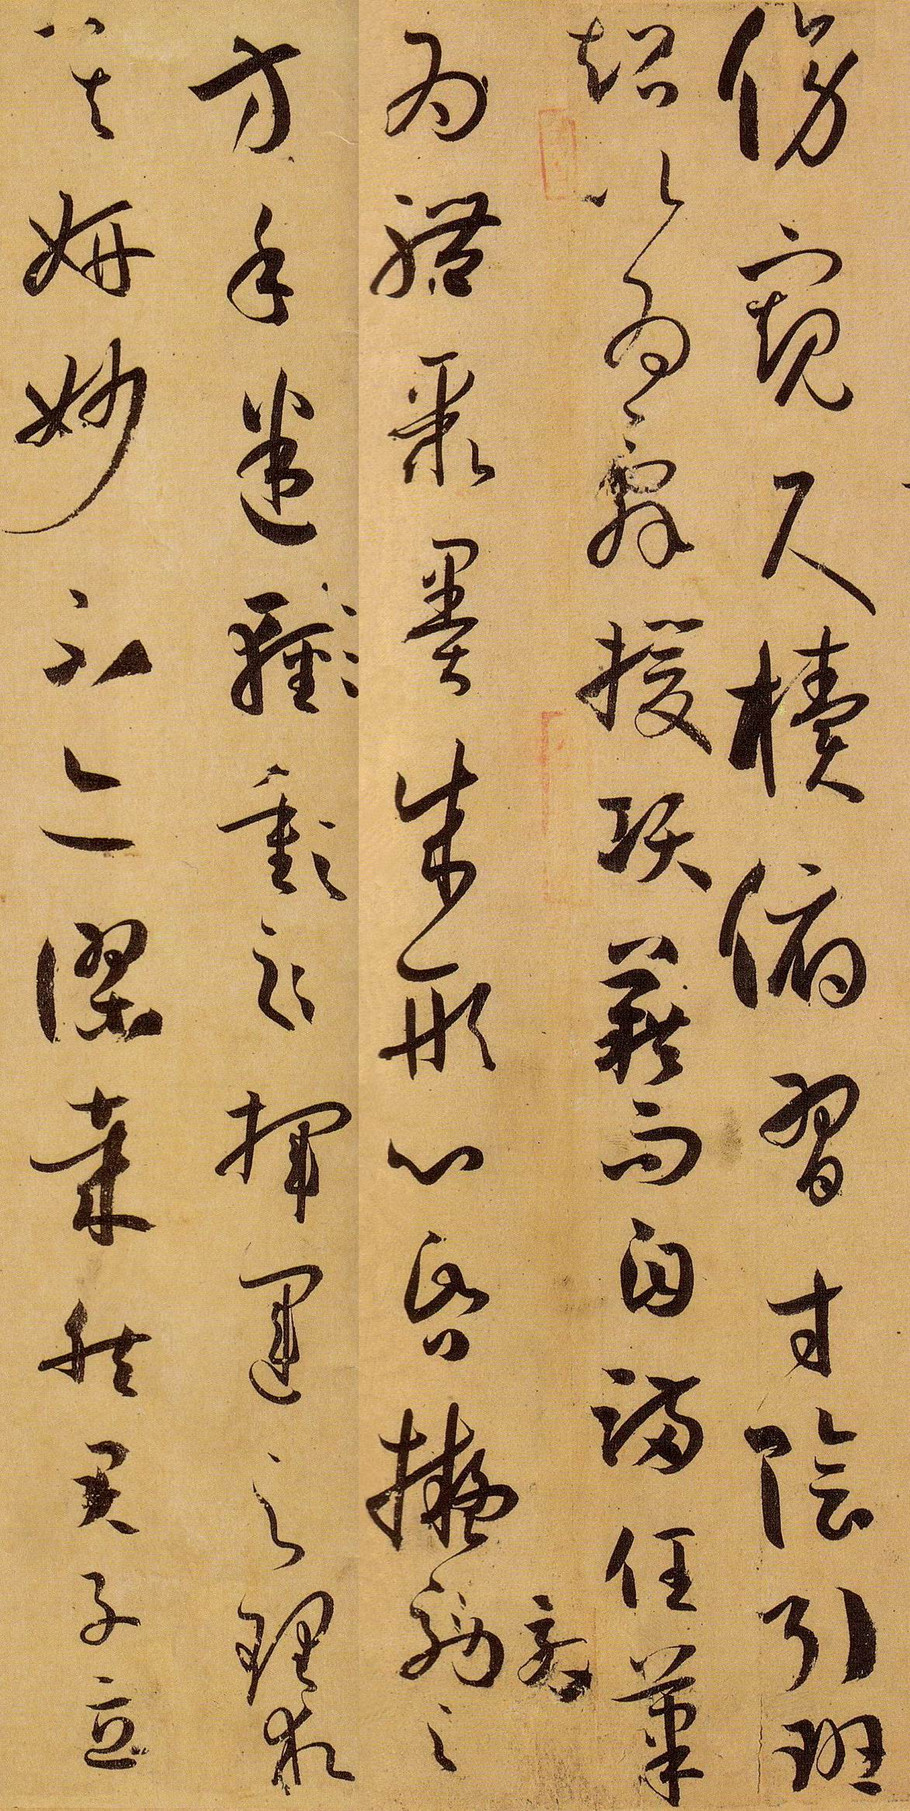 傍窺尺牘俯習寸陰引班
超以為辭援項籍而自滿任筆
為體聚墨成形心昏擬効之
方手迷輕重揮運之理求
其妍妙不亦謬哉然君子立